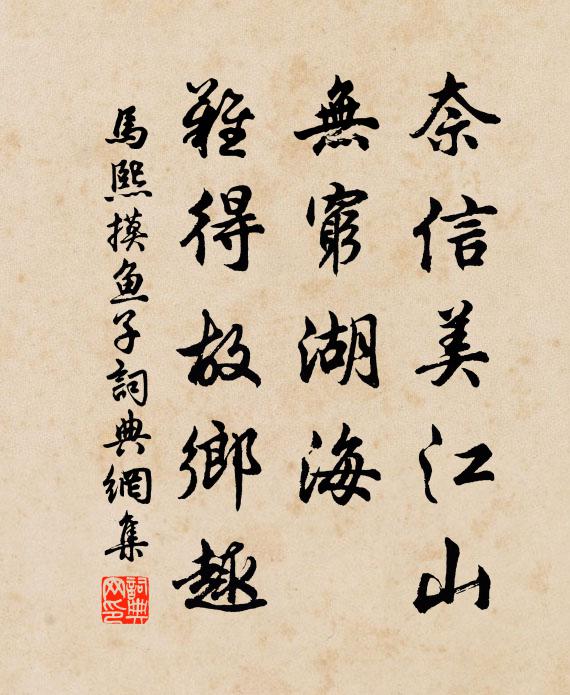 奈信美江山
無窮湖海
難得故鄉趣
馬熙摸魚子詞典網集
詞典網印